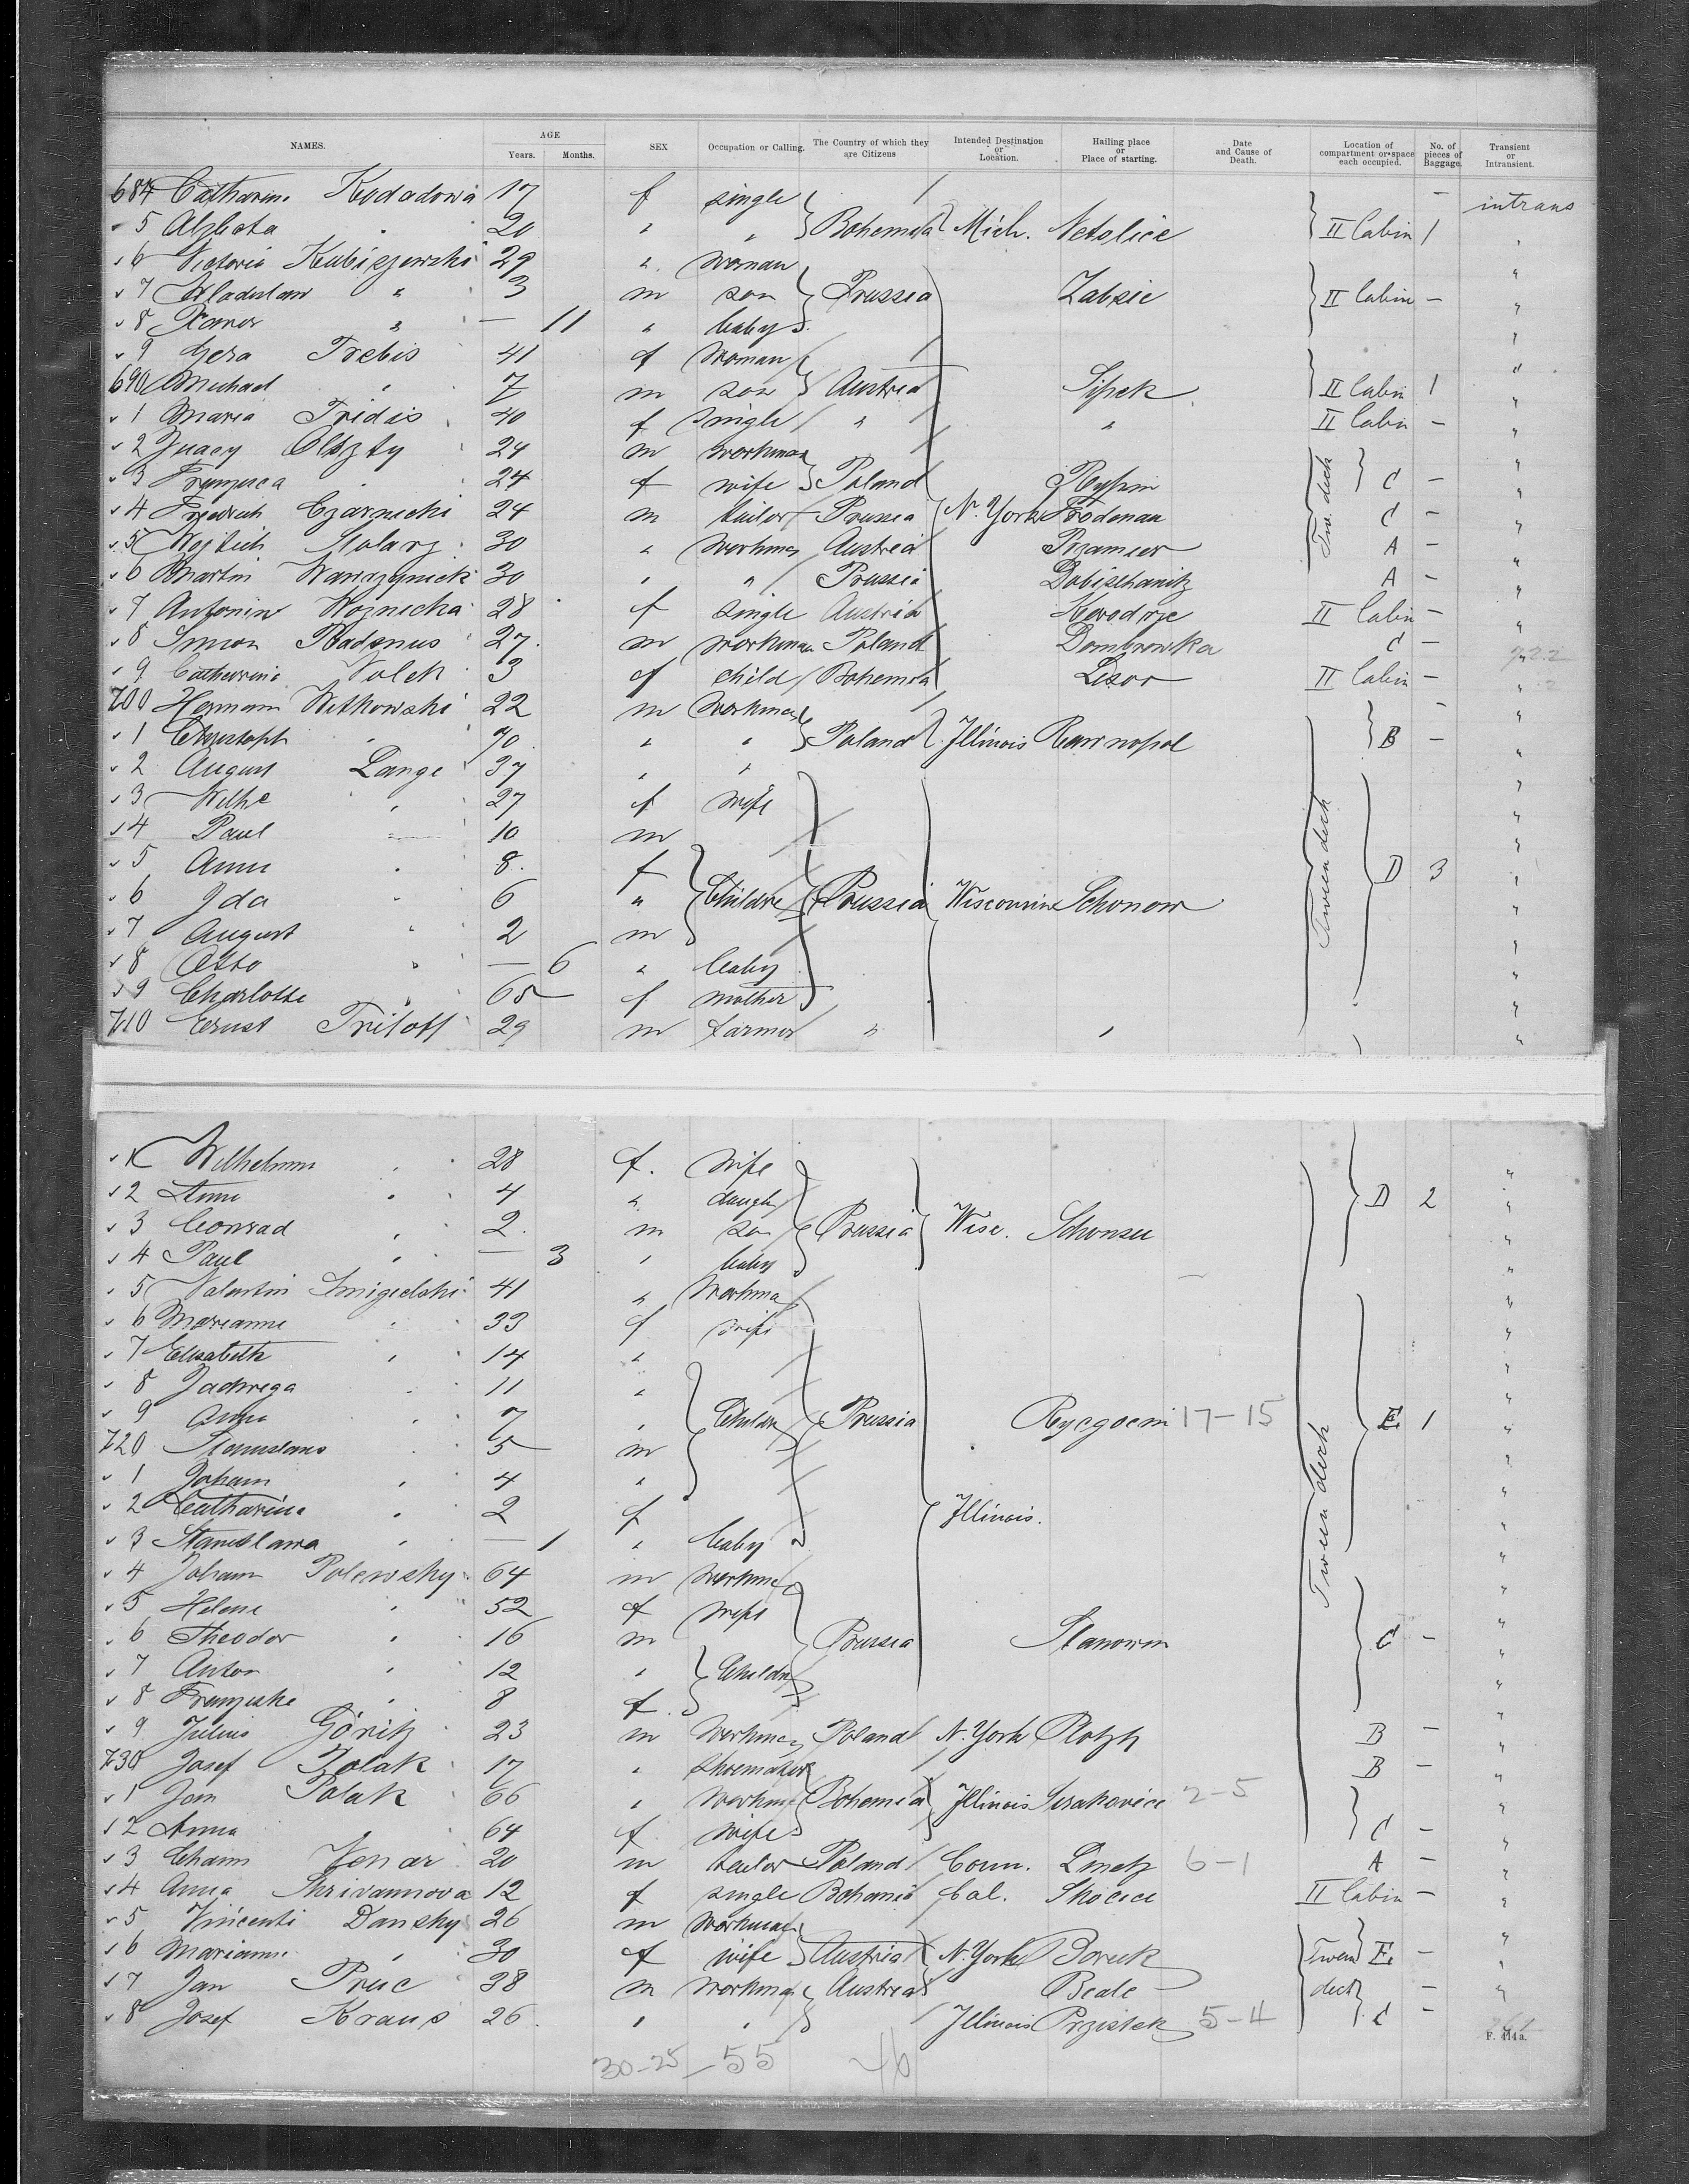 NAMES. AGE Years. Months. SEX Occupation or Calling. The Country of which they are Citizens Intended Destination or Location. Hailing place or Place of starting. Date and Cause of Death. Location of compartment or space each occupied. No. of pieces of Baggage. Transient or Intransient.
684 Catharina Kudadowa 17 f single — intrans
" 5 Alzbeta " 20 " " Bohemia Mich. Netolice II Cabin 1 "
" 6 Victoria Kubiszewski 29 " woman "
" 7 Wladislaw " 3 m son Prussia Zabsie II Cabin — "
" 8 Xaver " — 11 " baby "
" 9 Gera Trebis 41 f woman "
690 Michael " 7 m son Austria Sipek II Cabin 1 "
" 1 Maria Tridis 40 f single " " II Cabin — "
" 2 Ignacy Olszty 24 m workman "
" 3 Franzisca " 24 f wife Poland Rypin C — "
" 4 Friedrich Czarnecki 24 m tailor Prussia N. York Frodenau C — "
" 5 Wojtech Stolarz 30 " workman Austria A — "
" 6 Martin Wawrzyniek 30 " " Prussia Dobischanitz A — "
" 7 Antonine Woznicka 28 f single Austria II Cabin — "
" 8 Simon 27 m workman Poland Dombrowka C — "
" 9 Catharina Volek 3 f child Bohemia Lisov II Cabin — "
700 Hermann Witkowski 22 m workman — "
" 1 Christoph " 70 " " Poland Illinois B — "
" 2 August Lange 37 " " "
" 3 Wilhe " 27 f wife "
" 4 Paul " 10 m "
" 5 Anna " 8 f Tween deck D 3 "
" 6 Ida " 6 " Childre Prussia Wisconsin Schonow "
" 7 August " 2 m "
" 8 Otto " — 6 " baby "
" 9 Charlotte " 65 f mother "
710 Ernst Triloff 29 m farmer " "
" 1 Wilhelmm " 28 f. wife "
" 2 Anna " 4 " daugh D 2 "
" 3 Conrad " 2 m son Prussia Wisc. Schonsee "
" 4 Paul " — 3 " baby "
" 5 Valentin Smigielski 41 " workma "
" 6 Marianne " 33 f wife "
" 7 Elisabeth " 14 " "
" 8 Jadwega " 11 " "
" 9 Anna " 7 " Childr Prussia 17-15 E. 1 "
720 Stanislaus " 5 m "
" 1 Johann " 4 " Tween deck "
" 2 Catharina " 2 f Illinois. "
" 3 Stanislawa " — 1 " baby "
" 4 Johann Polewsky 64 m workma "
" 5 Helene " 52 f wife "
" 6 Theodor " 16 m Prussia Stanowin C — "
" 7 Anton " 12 " Childr "
" 8 Franziska " 8 f "
" 9 Julius Göritz 23 m workman Poland N. York B — "
730 Josef Polak 17 " shoemaker B — "
" 1 Jan Polak 66 " workma Bohemia Illinois 2-5 "
" 2 Anna " 64 f wife C — "
" 3 Chaim 20 m tailor Poland Conn. 6-1 A — "
" 4 Anna Skrivannova 12 f single Bohemia Cal. Skocice II Cabin — "
" 5 Vincenti Dansky 26 m workman "
" 6 Mariann " 30 f wife Austria N. York Borek Tween E. — "
" 7 Jan Pruc 38 m workma Austria Beale deck — "
" 8 Josef Kraus 26 " " Illinois 5-4 C — "
30-25 - 55 46
F. 414a.